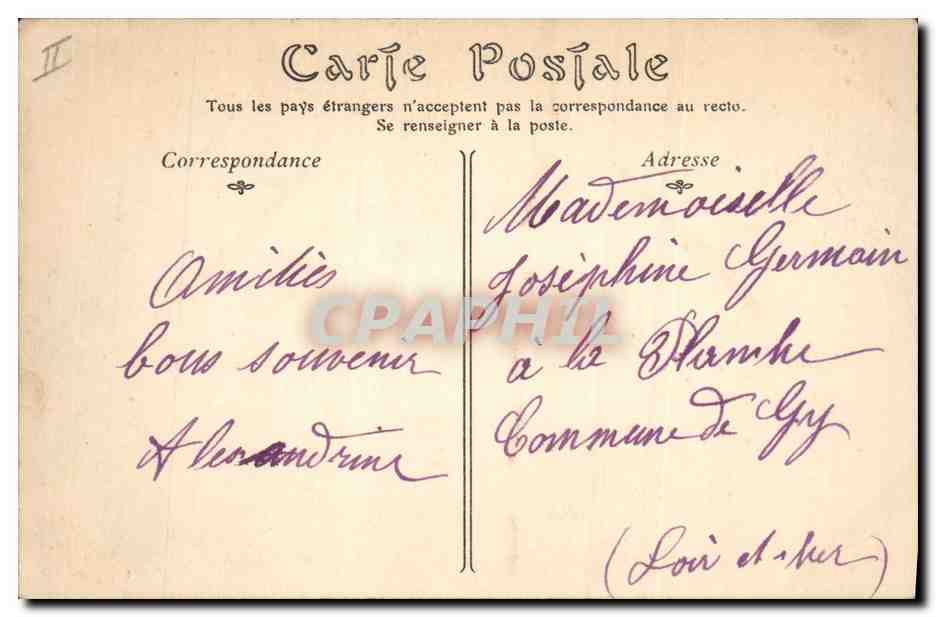 II
Carte Postale
Tous les pays étrangers n'acceptent pas la correspondance au recto.
Se renseigner à la poste.
Correspondance
Amitiés
bons souvenir
Alexandrine
Adresse
Mademoiselle
Joséphine Germain
à la Planche
Commune de Gy
(Loir et cher)
CPAPHIL